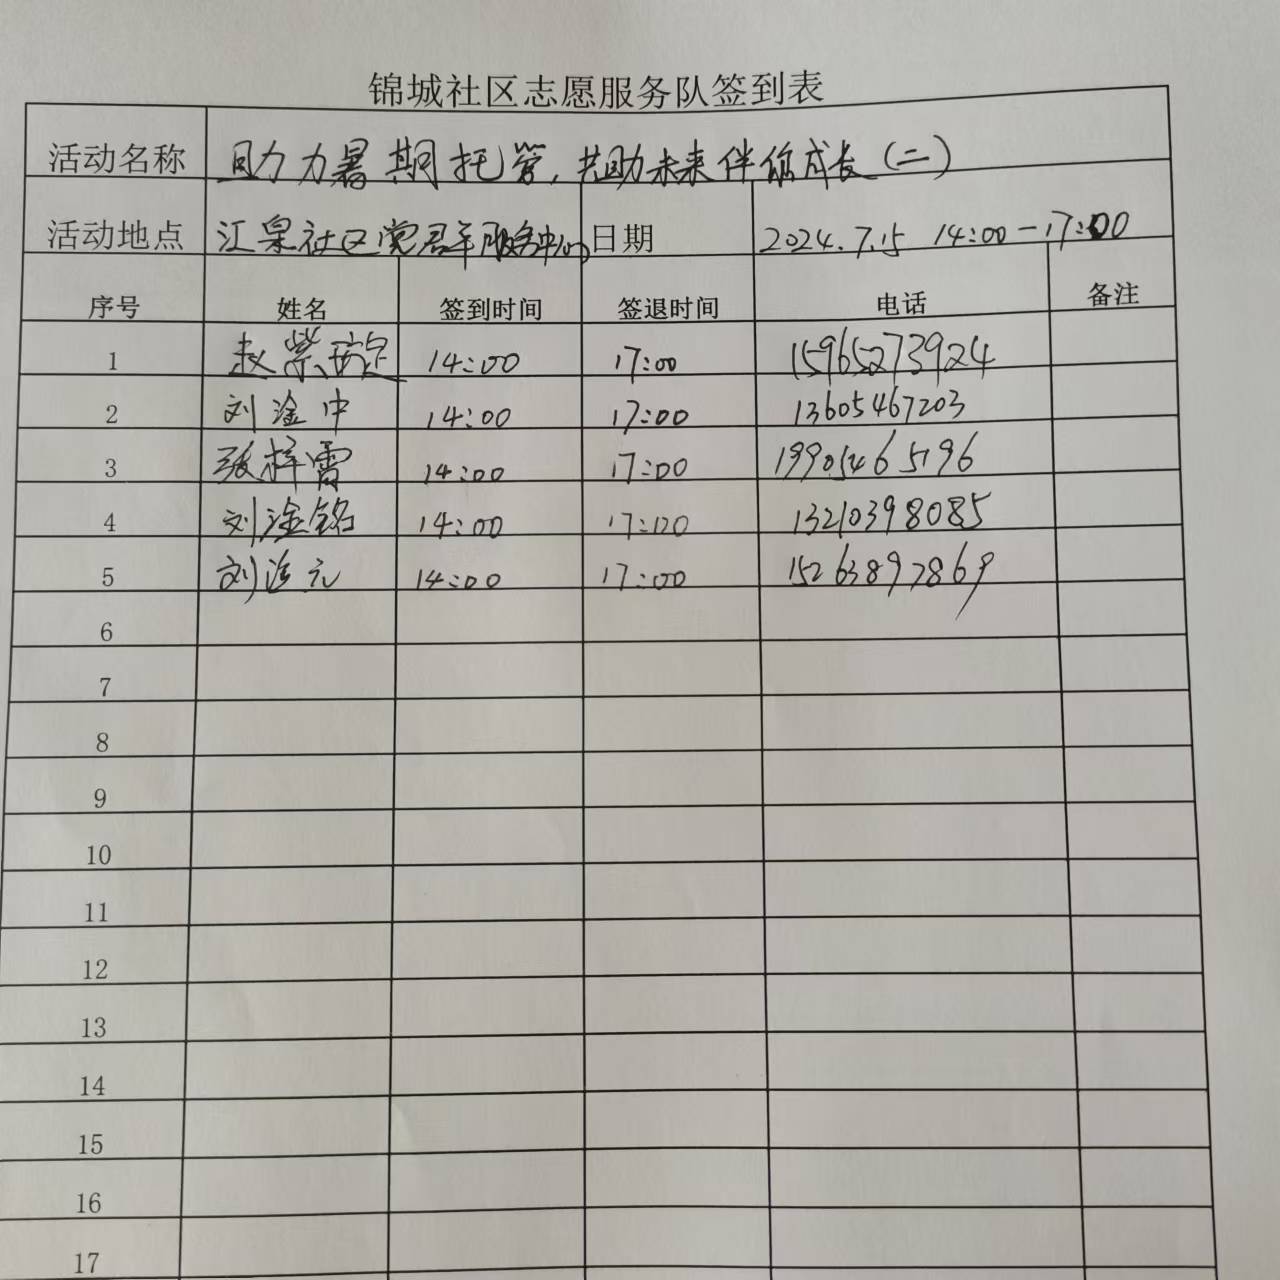 锦城社区志愿服务队签到表
活动名称 助力暑期托管,共助未来伴你成长(二)
活动地点 汇泉社区党群服务中心 日期 2024.7.15 14:00-17:00
序号 姓名 签到时间 签退时间 电话 备注
1 赵紫 14:00 17:00 15965273924
2 刘淦中 14:00 17:00 13605467203
3 张梓雷 14:00 17:00 19905465196
4 刘淦铭 14:00 17:00 13210398085
5 刘 元 14:00 17:00 15263897869
6
7
8
9
10
11
12
13
14
15
16
17